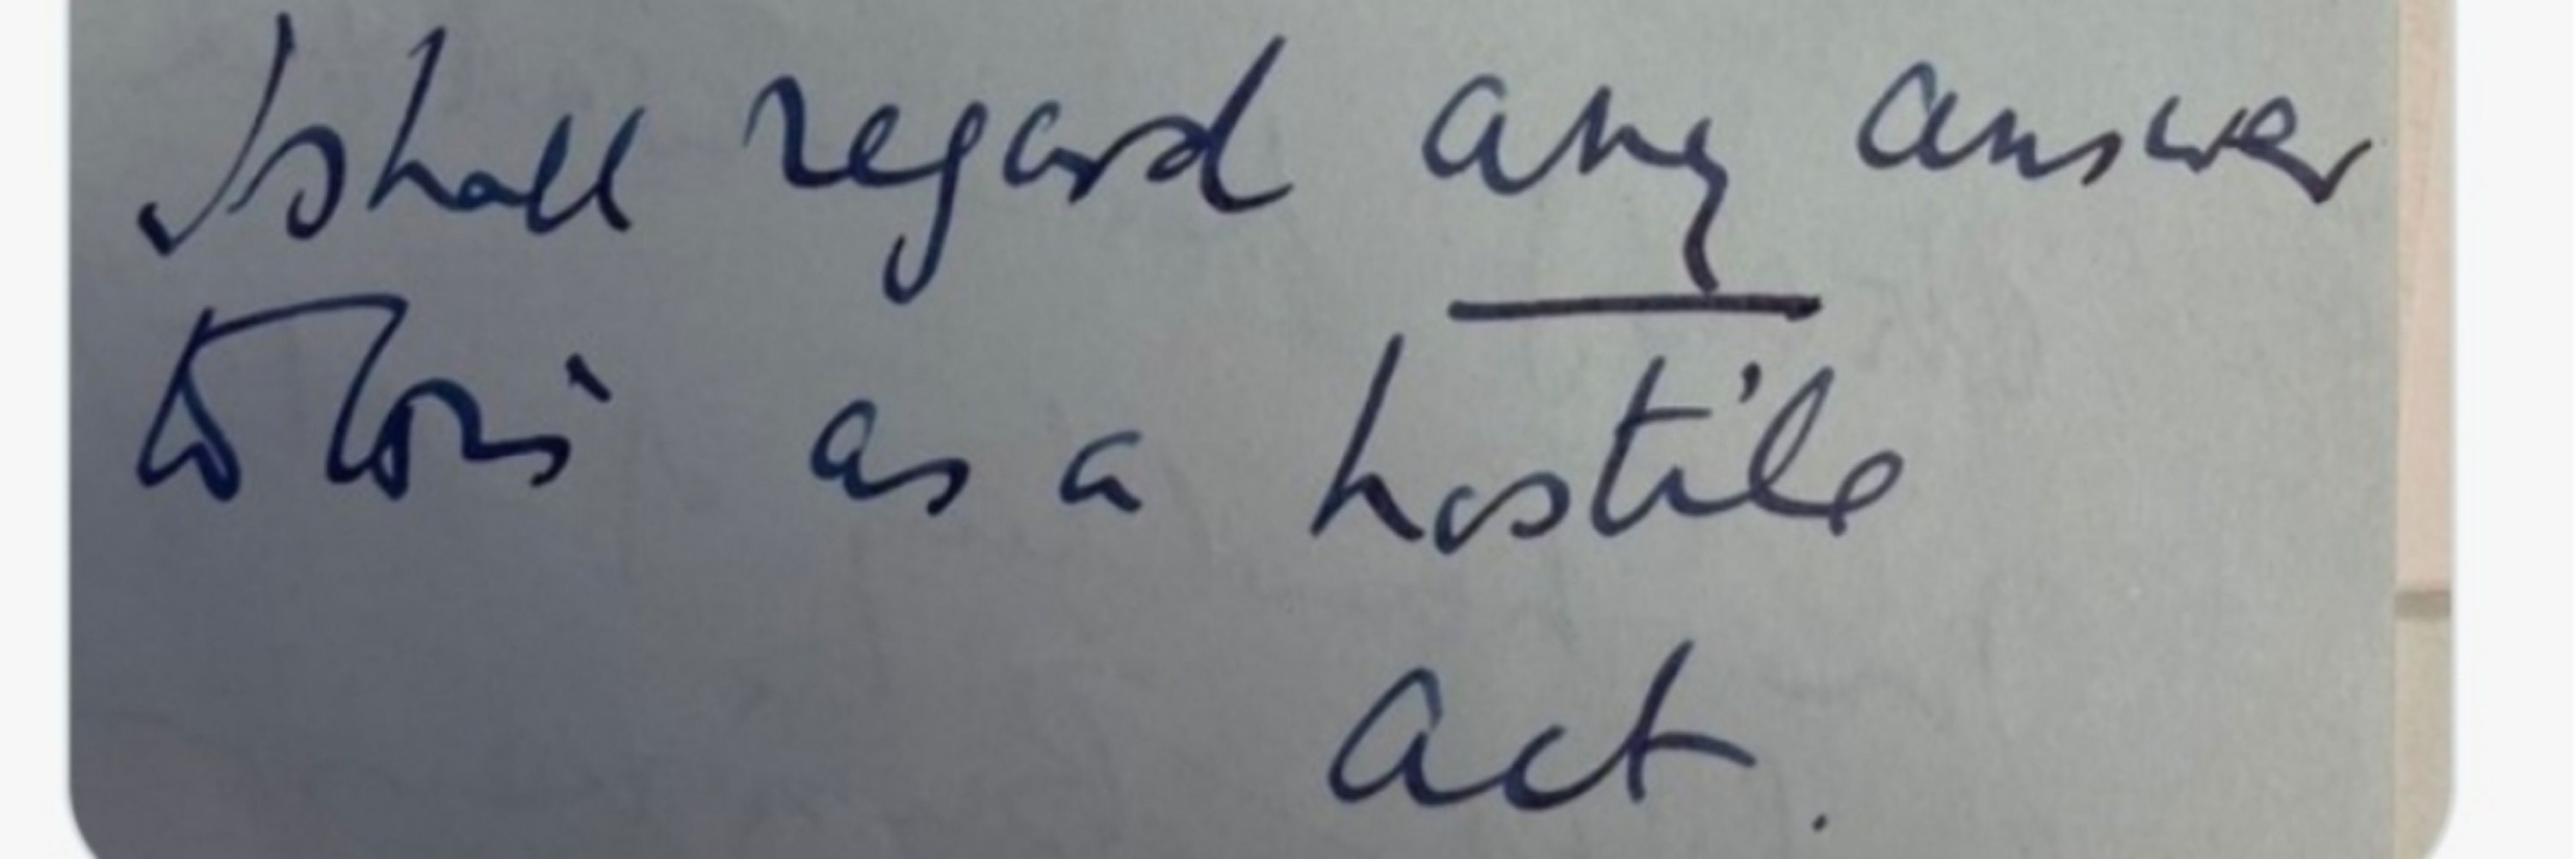 I shall regard any answer
to this as a hostile
act.